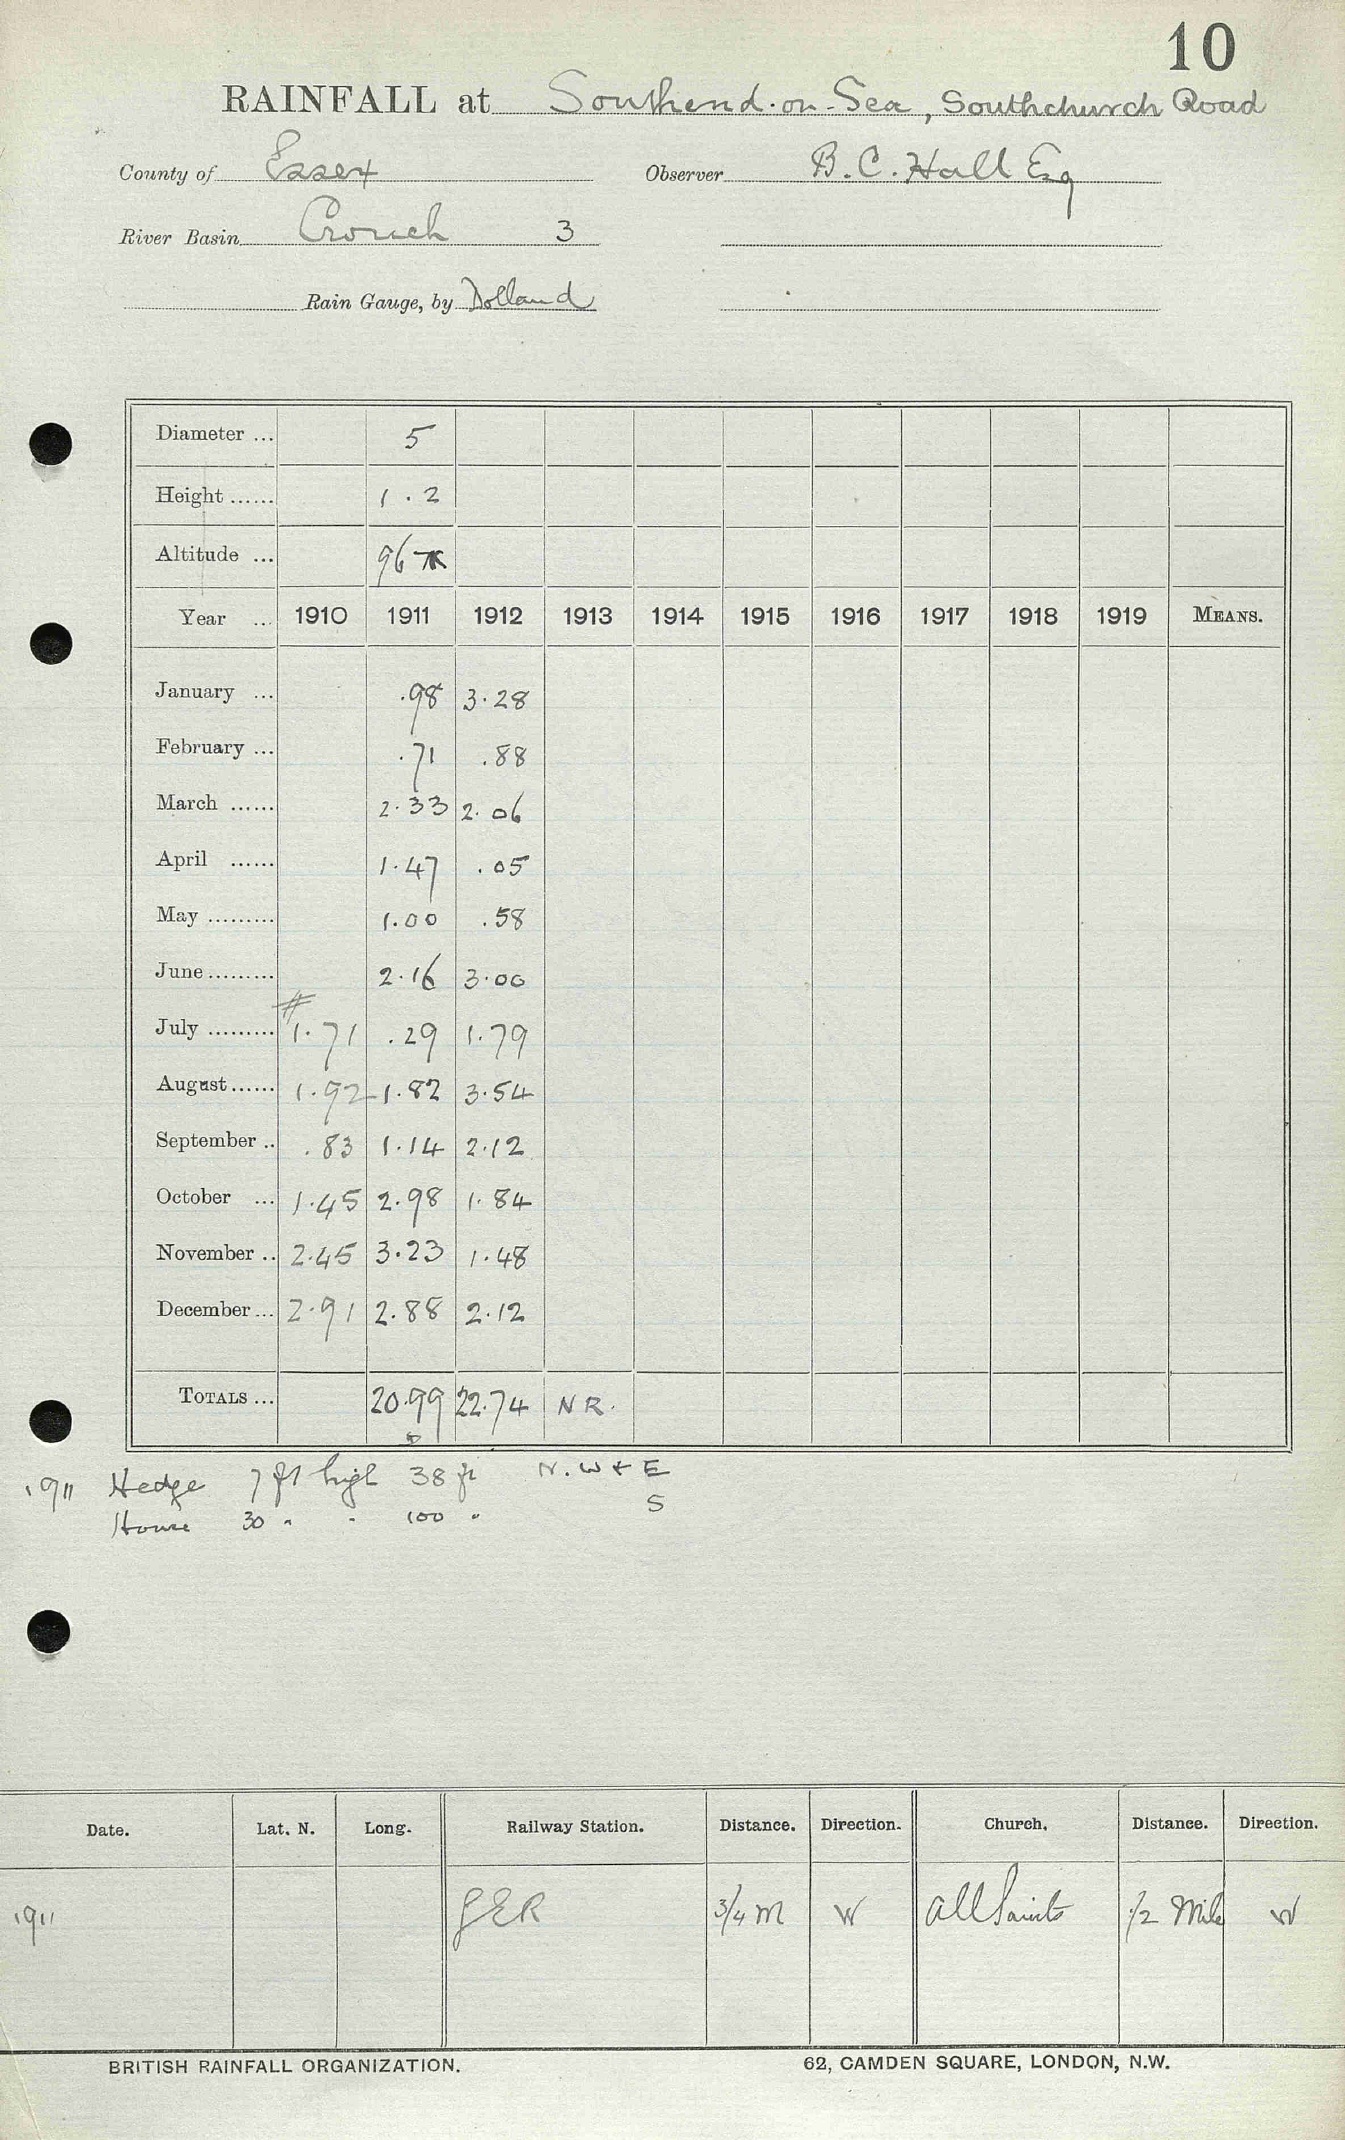 10
RAINFALL at Southend-on-Sea, Southchurch Road
County of Essex Observer B. C. Hall Esq
River Basin Crouch 3
Rain Gauge, by Dolland
Diameter ... 5
Height ...... 1.2
Altitude ... 96
Year ... 1910 1911 1912 1913 1914 1915 1916 1917 1918 1919 MEANS.
January ... .98 3.28
February ... .71 .88
March ...... 2.33 2.06
April ...... 1.47 .05
May ......... 1.00 .58
June ......... 2.16 3.00
#
July ......... 1.71 .29 1.79
August ...... 1.92 1.82 3.54
September .. .83 1.14 2.12
October ... 1.45 2.98 1.84
November .. 2.45 3.23 1.48
December ... 2.91 2.88 2.12
TOTALS ... 20.99 22.74 NR.
1911 Hedge 7 ft high 38 ft N. W & E
House 30 " " 100 " S
Date. Lat. N. Long. Railway Station. Distance. Direction. Church. Distance. Direction.
1911 GER 3/4 M W All Saints 1/2 Mile W
BRITISH RAINFALL ORGANIZATION. 62, CAMDEN SQUARE, LONDON, N.W.